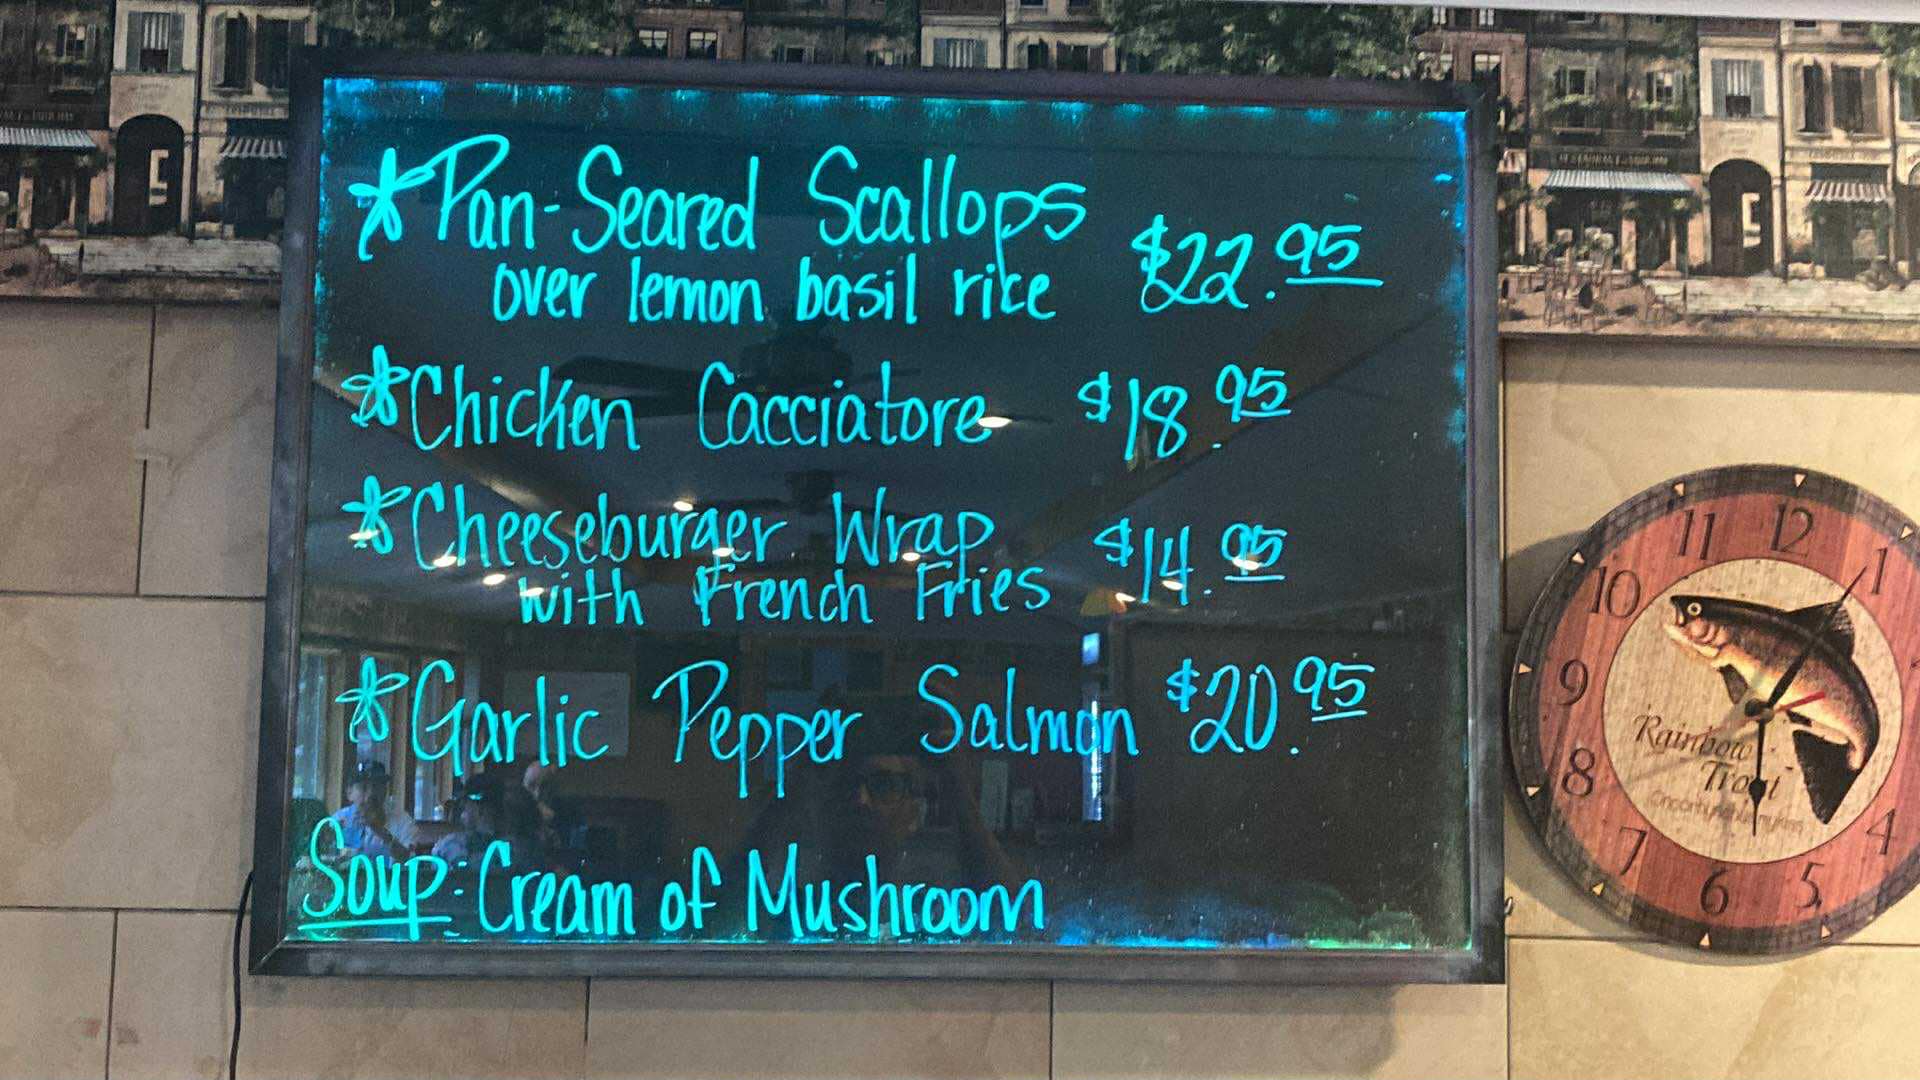 *Pan-Seared Scallops
over lemon basil rice $22.95
*Chicken Cacciatore $18.95
*Cheeseburger Wrap
with French Fries $14.95
*Garlic Pepper Salmon $20.95
Soup: Cream of Mushroom
11 12 1
10
9
8
7 6 5 4
Rainbow
Trout